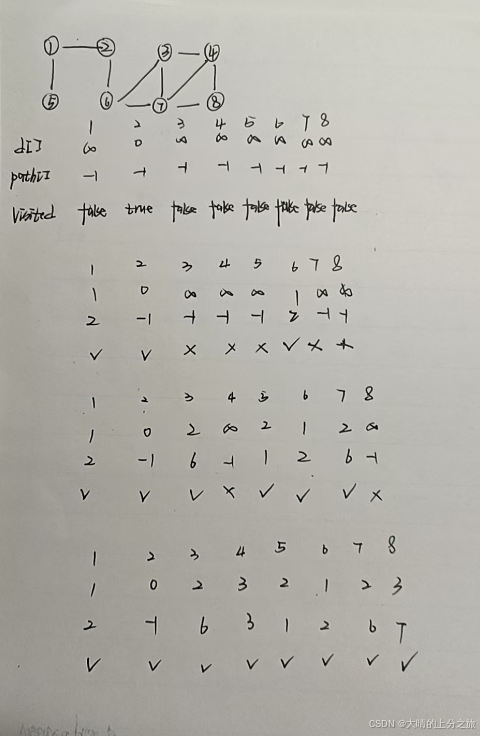 1 2 3 4
5 6 7 8
1 2 3 4 5 6 7 8
d[] ∞ 0 ∞ ∞ ∞ ∞ ∞ ∞
path[] -1 -1 -1 -1 -1 -1 -1 -1
Visited false true false false false false false false
1 2 3 4 5 6 7 8
1 0 ∞ ∞ ∞ 1 ∞ ∞
2 -1 -1 -1 -1 2 -1 -1
✓ ✓ × × × ✓ × ×
1 2 3 4 5 6 7 8
1 0 2 ∞ 2 1 2 ∞
2 -1 6 -1 1 2 6 -1
✓ ✓ ✓ × ✓ ✓ ✓ ×
1 2 3 4 5 6 7 8
1 0 2 3 2 1 2 3
2 -1 6 3 1 2 6 7
✓ ✓ ✓ ✓ ✓ ✓ ✓ ✓
CSDN @大晴的上分之旅